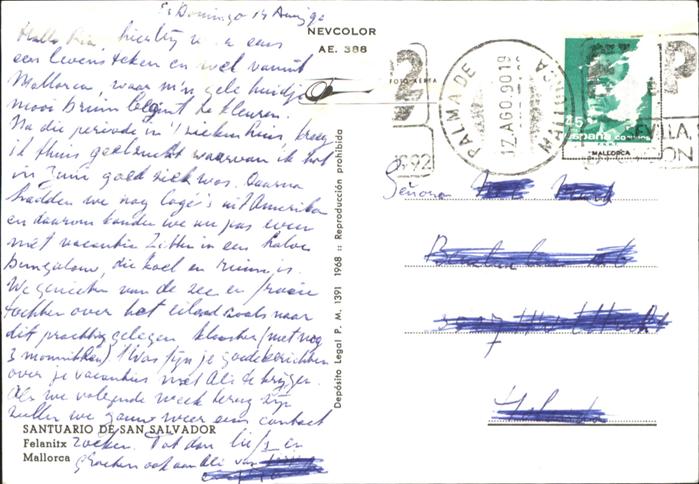 Domingo 12 Aug '90
Hallo Ria, hierbij weer eens
een levensteken en wel vanuit
Mallorca, waar m'n gele huidje
mooi bruin begint te kleuren.
Na die periode in 't ziekenhuis, kreeg
ik thuis geelzucht waarvan ik tot
in Juni goed ziek was. Daarna
hadden we nog logé's uit Amerika
en daarom konden we nu pas even
met vacantie. Zitten in een
bungalow, die koel en ruim is.
We genieten van de zee en mooie
tochten over het eiland zoals naar
dit prachtig gelegen klooster (met nog
3 monniken) Was fijn je goede berichten
over je vacanties met Ali te krijgen.
Als we volgende week terug zijn
zullen we gauw weer eens contact
zoeken. Tot dan liefs en
groeten ook aan Ali van
SANTUARIO DE SAN SALVADOR
Felanitx
Mallorca
NEVCOLOR
AE. 388
FOTO AEREA
Depósito Legal P. M. 1391 1968 :: Reproducción prohibida
PALMA DE MALLORCA
12.AGO.90 19
1992
SEVILLA
45
España correos
MALLORCA
Señora